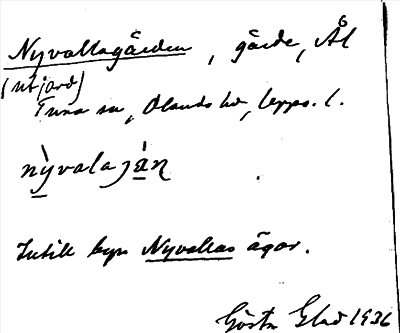 Nyvallagärden, gärde, Ål
(utjord)
Tuna sn, Olands hd, Upps. l.
nỳvalajàn
Intill byn Nyvallas ägor.
Gösta Glad 1936